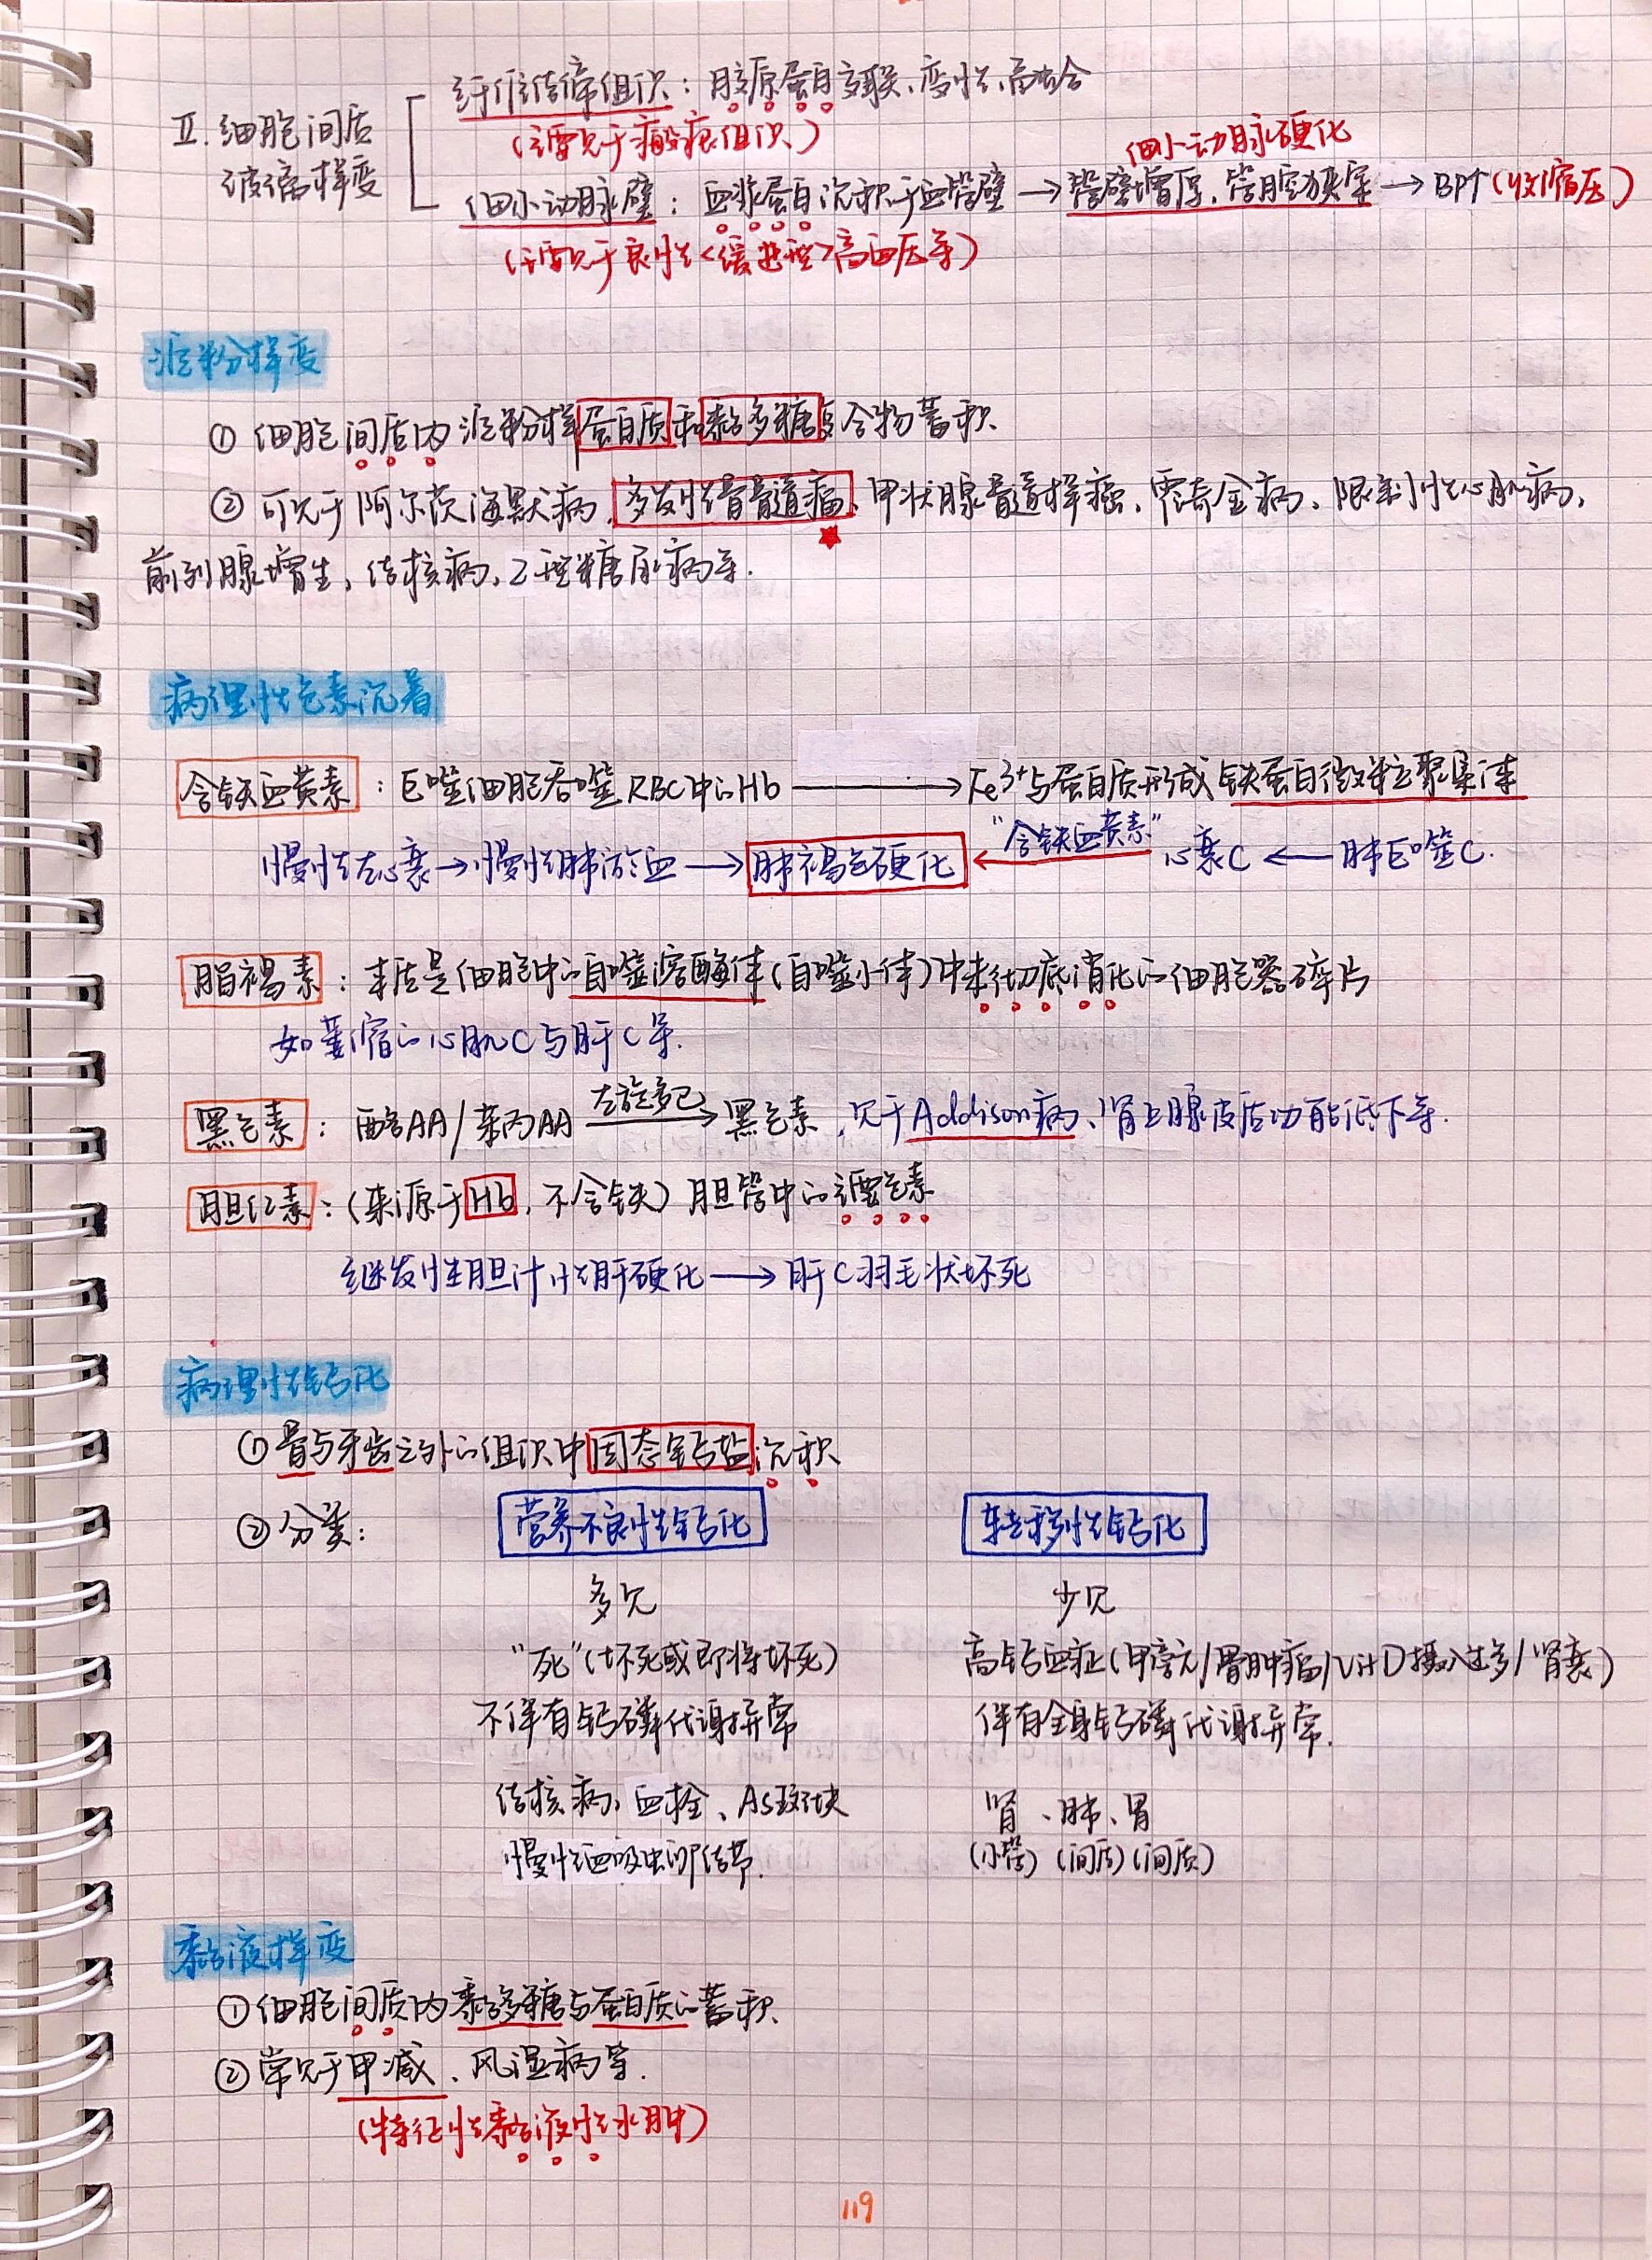 纤维结缔组织：胶原蛋白交联、变性、融合
（主要见于瘢痕组织）
Ⅱ.细胞间质
玻璃样变
细小动脉硬化
细小动脉壁：血浆蛋白沉积于血管壁→管壁增厚、管腔狭窄→BP↑（收缩压）
（主要见于良性<缓进型>高血压等）
淀粉样变
① 细胞间质内淀粉样蛋白质和黏多糖复合物蓄积
② 可见于阿尔茨海默病、多发性骨髓瘤、甲状腺髓样癌、霍奇金病、限制性心肌病、
前列腺增生、结核病、2型糖尿病等.
病理性色素沉着
含铁血黄素：巨噬细胞吞噬RBC中的Hb→Fe³⁺与蛋白质形成铁蛋白微粒聚集体
慢性左心衰→慢性肺淤血→肺褐色硬化←"含铁血黄素"心衰C←肺巨噬C.
脂褐素：本质是细胞中的自噬溶酶体（自噬小体）中未彻底消化的细胞器碎片
如萎缩的心肌C与肝C等.
黑色素：酪AA/苯丙AA 左旋多巴→黑色素，见于Addison病、肾上腺皮质功能低下等.
胆红素：（来源于Hb，不含铁）胆管中的主要色素
继发性胆汁性肝硬化→肝C羽毛状坏死
病理性钙化
① 骨与牙齿之外的组织中固态钙盐沉积
② 分类： 营养不良性钙化 转移性钙化
多见 少见
"死"（坏死或即将坏死） 高钙血症（甲旁亢/骨肿瘤/VitD摄入过多/肾衰）
不伴有钙磷代谢异常 伴有全身钙磷代谢异常.
结核病、血栓、AS斑块 肾、肺、胃
慢性血吸虫卵结节. （小管）（间质）（间质）
黏液样变
① 细胞间质内黏多糖与蛋白质的蓄积
② 常见于甲减、风湿病等.
（特征性黏液性水肿）
119